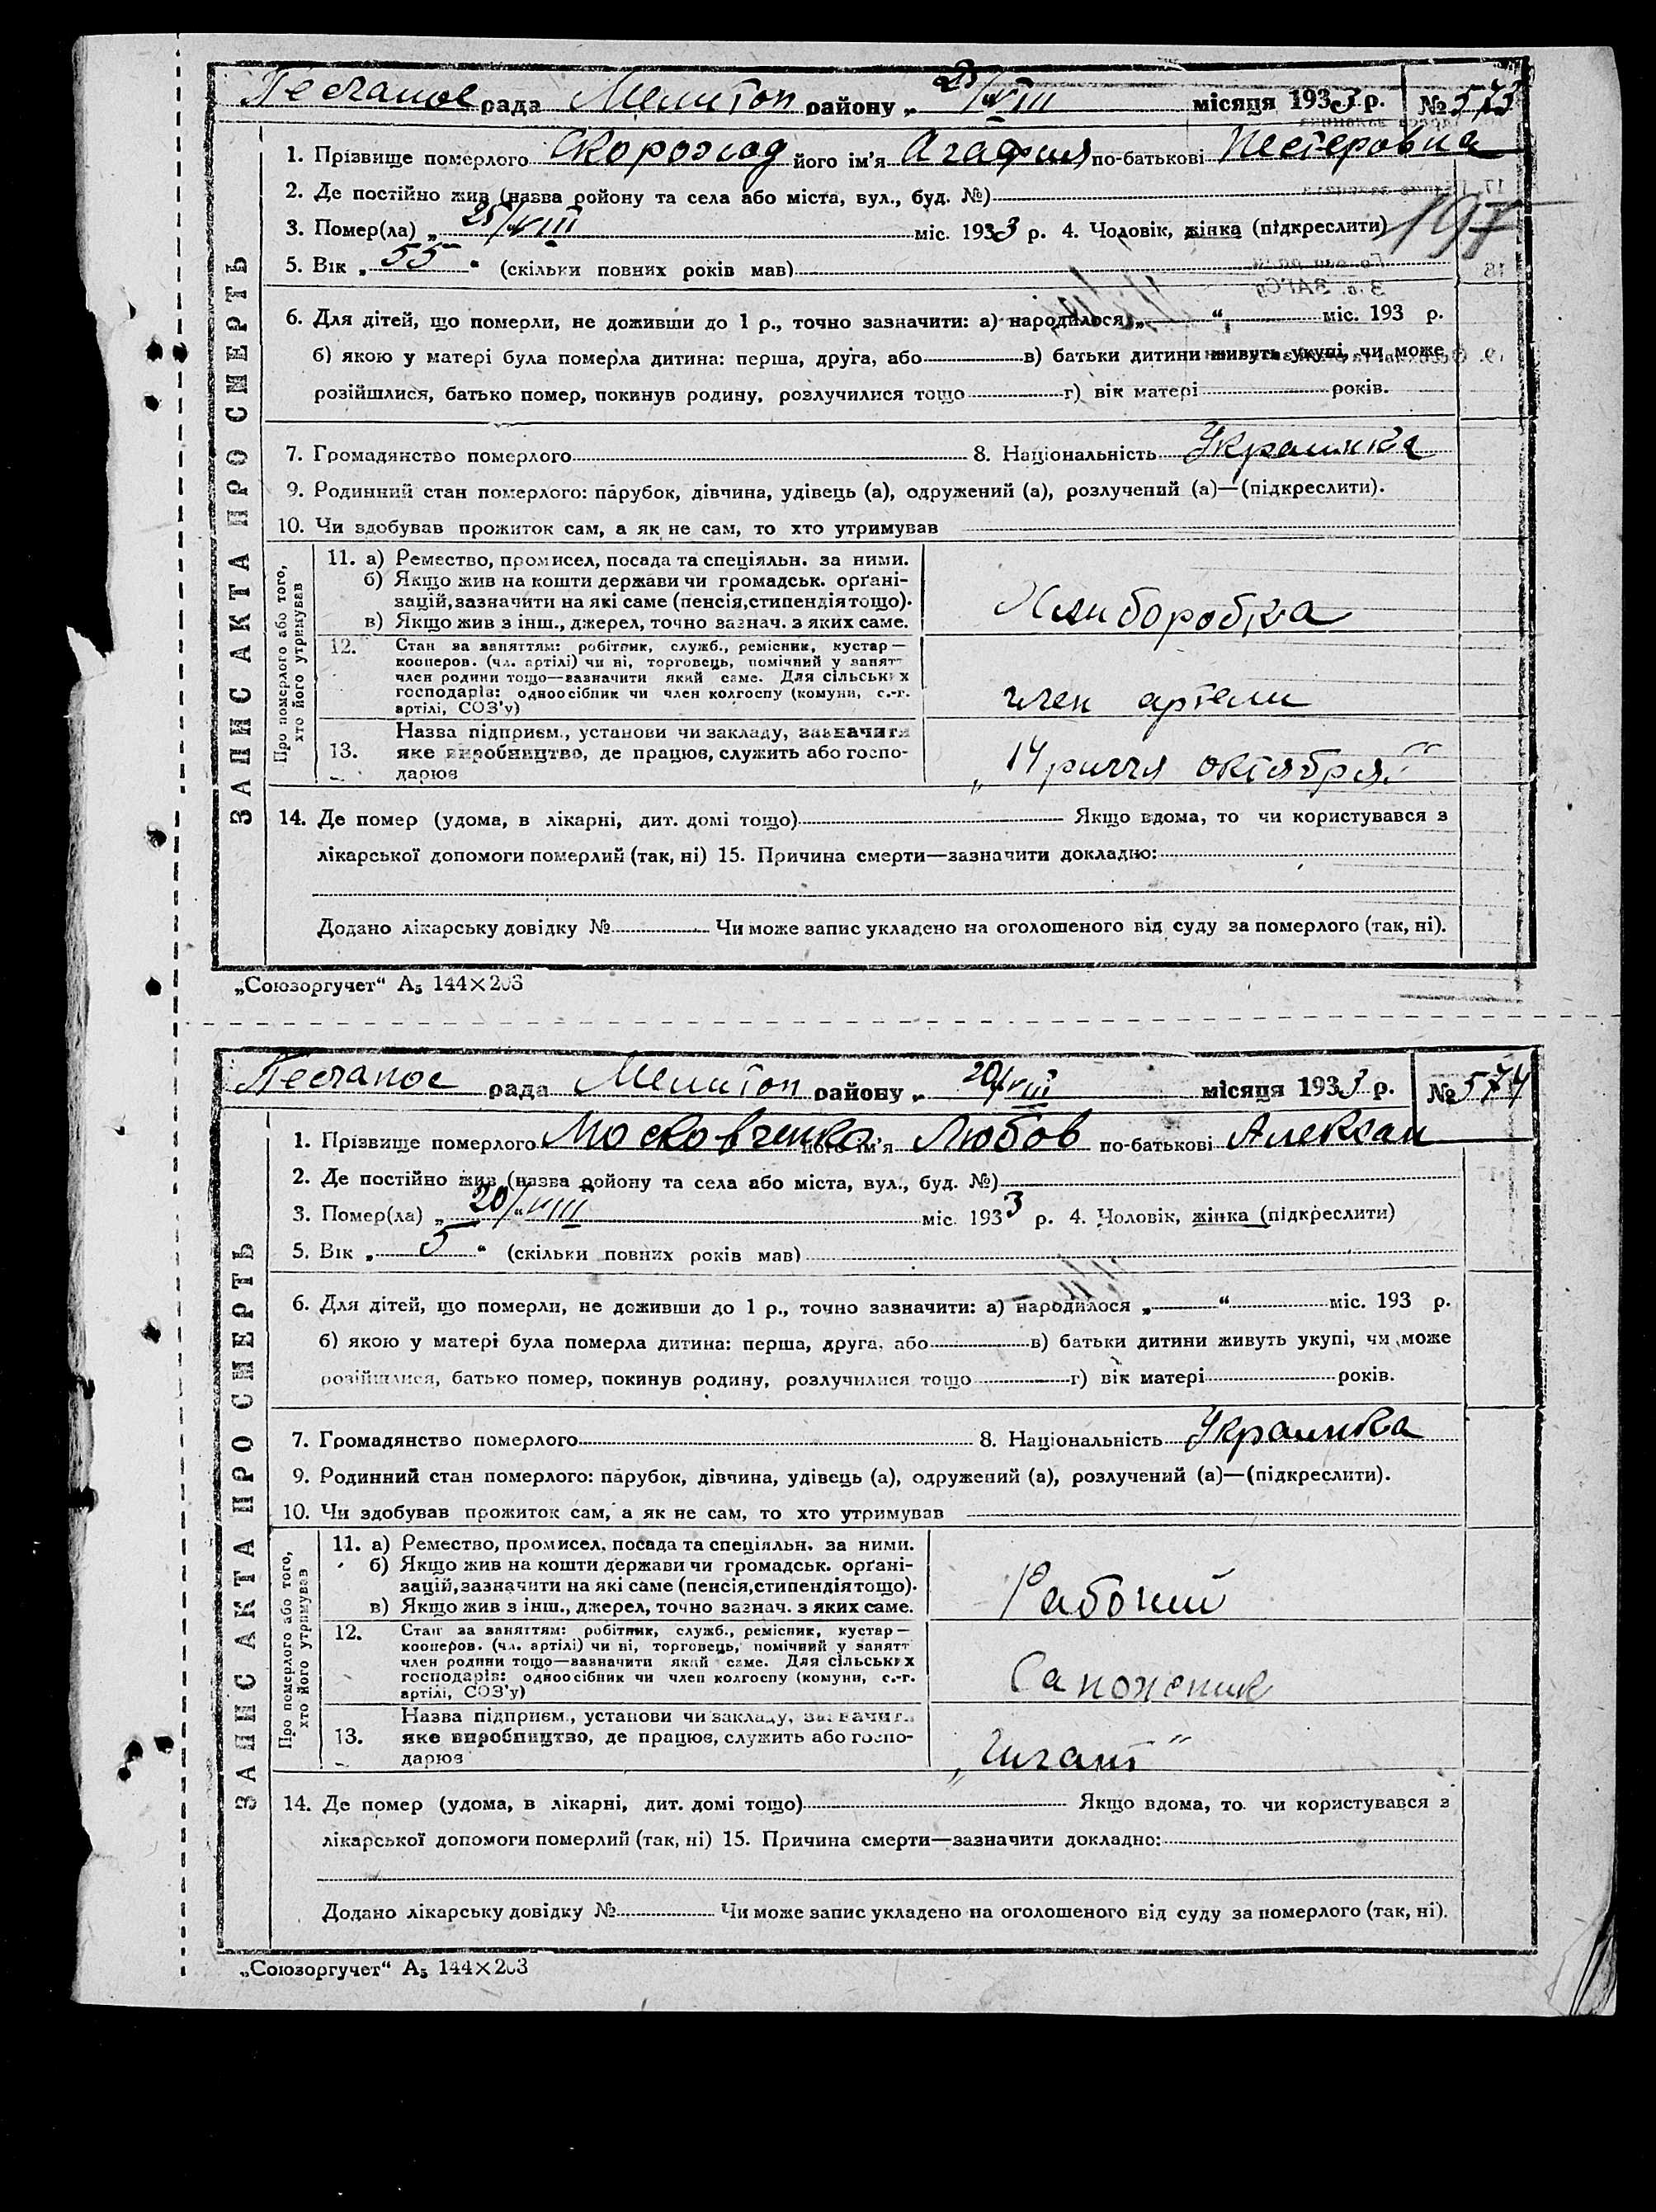 Песчаное рада Мелитоп району „ 25/VIII місяця 1933 р. № 573
1. Прізвище померлого Скороход його ім'я Агафия по-батькові Нестеровна
2. Де постійно жив (назва ройону та села або міста, вул., буд. №)
3. Помер(ла) „ 25/VIII міс. 1933 р. 4. Чоловік, жінка (підкреслити) 197
5. Вік „ 55 “ (скільки повних років мав)
6. Для дітей, що померли, не доживши до 1 р., точно зазначити: а) народилося „ “ міс. 193 р.
б) якою у матері була померла дитина: перша, друга, або в) батьки дитини живуть укупі, чи може
розійшлися, батько помер, покинув родину, розлучилися тощо г) вік матері років.
7. Громадянство померлого 8. Національність Украинка
9. Родинний стан померлого: парубок, дівчина, удівець (а), одружений (а), розлучений (а)—(підкреслити).
10. Чи здобував прожиток сам, а як не сам, то хто утримував
ЗАПИС АКТА ПРО СМЕРТЬ
Про померлого або того,
хто його утримував
11. а) Ремество, промисел, посада та спеціяльн. за ними.
б) Якщо жив на кошти держави чи громадськ. орґані-
зацій, зазначити на які саме (пенсія, стипендія тощо).
в) Якщо жив з інш., джерел, точно зазнач. з яких саме.
Хлиборобка
12. Стан за заняттям: робітник, служб., ремісник, кустар—
кооперов. (чл. артілі) чи ні, торговець, помічний у занятт
член родини тощо—зазначити який саме. Для сільських
господарів: одноосібник чи член колгоспу (комуни, с.-г.
артілі, СОЗ'у)
член артели
Назва підприєм., установи чи закладу, зазначити
13. яке виробництво, де працює, служить або госпо-
дарює
„14 риччя октября“
14. Де помер (удома, в лікарні, дит. домі тощо) Якщо вдома, то чи користувався з
лікарської допомоги померлий (так, ні) 15. Причина смерти—зазначити докладно:
Додано лікарську довідку № Чи може запис укладено на оголошеного від суду за померлого (так, ні).
„Союзоргучет“ А5 144×203
Песчаное рада Мелитоп району „ 20/VIII місяця 1933 р. № 574
1. Прізвище померлого Московченко його ім'я Любов по-батькові Алексан
2. Де постійно жив (назва ройону та села або міста, вул., буд. №)
3. Помер(ла) „ 20/VIII міс. 1933 р. 4. Чоловік, жінка (підкреслити)
5. Вік „ 5 “ (скільки повних років мав)
6. Для дітей, що померли, не доживши до 1 р., точно зазначити: а) народилося „ “ міс. 193 р.
б) якою у матері була померла дитина: перша, друга, або в) батьки дитини живуть укупі, чи може
розійшлися, батько помер, покинув родину, розлучилися тощо г) вік матері років.
7. Громадянство померлого 8. Національність Украинка
9. Родинний стан померлого: парубок, дівчина, удівець (а), одружений (а), розлучений (а)—(підкреслити).
10. Чи здобував прожиток сам, а як не сам, то хто утримував
ЗАПИС АКТА ПРО СМЕРТЬ
Про померлого або того,
хто його утримував
11. а) Ремество, промисел, посада та спеціяльн. за ними.
б) Якщо жив на кошти держави чи громадськ. орґані-
зацій, зазначити на які саме (пенсія, стипендія тощо).
в) Якщо жив з інш., джерел, точно зазнач. з яких саме.
Рабочий
12. Стан за заняттям: робітник, служб., ремісник, кустар—
кооперов. (чл. артілі) чи ні, торговець, помічний у занятт
член родини тощо—зазначити який саме. Для сільських
господарів: одноосібник чи член колгоспу (комуни, с.-г.
артілі, СОЗ'у)
Сапожник
Назва підприєм., установи чи закладу, зазначити
13. яке виробництво, де працює, служить або госпо-
дарює
„Гигант“
14. Де помер (удома, в лікарні, дит. домі тощо) Якщо вдома, то чи користувався з
лікарської допомоги померлий (так, ні) 15. Причина смерти—зазначити докладно:
Додано лікарську довідку № Чи може запис укладено на оголошеного від суду за померлого (так, ні).
„Союзоргучет“ А5 144×203